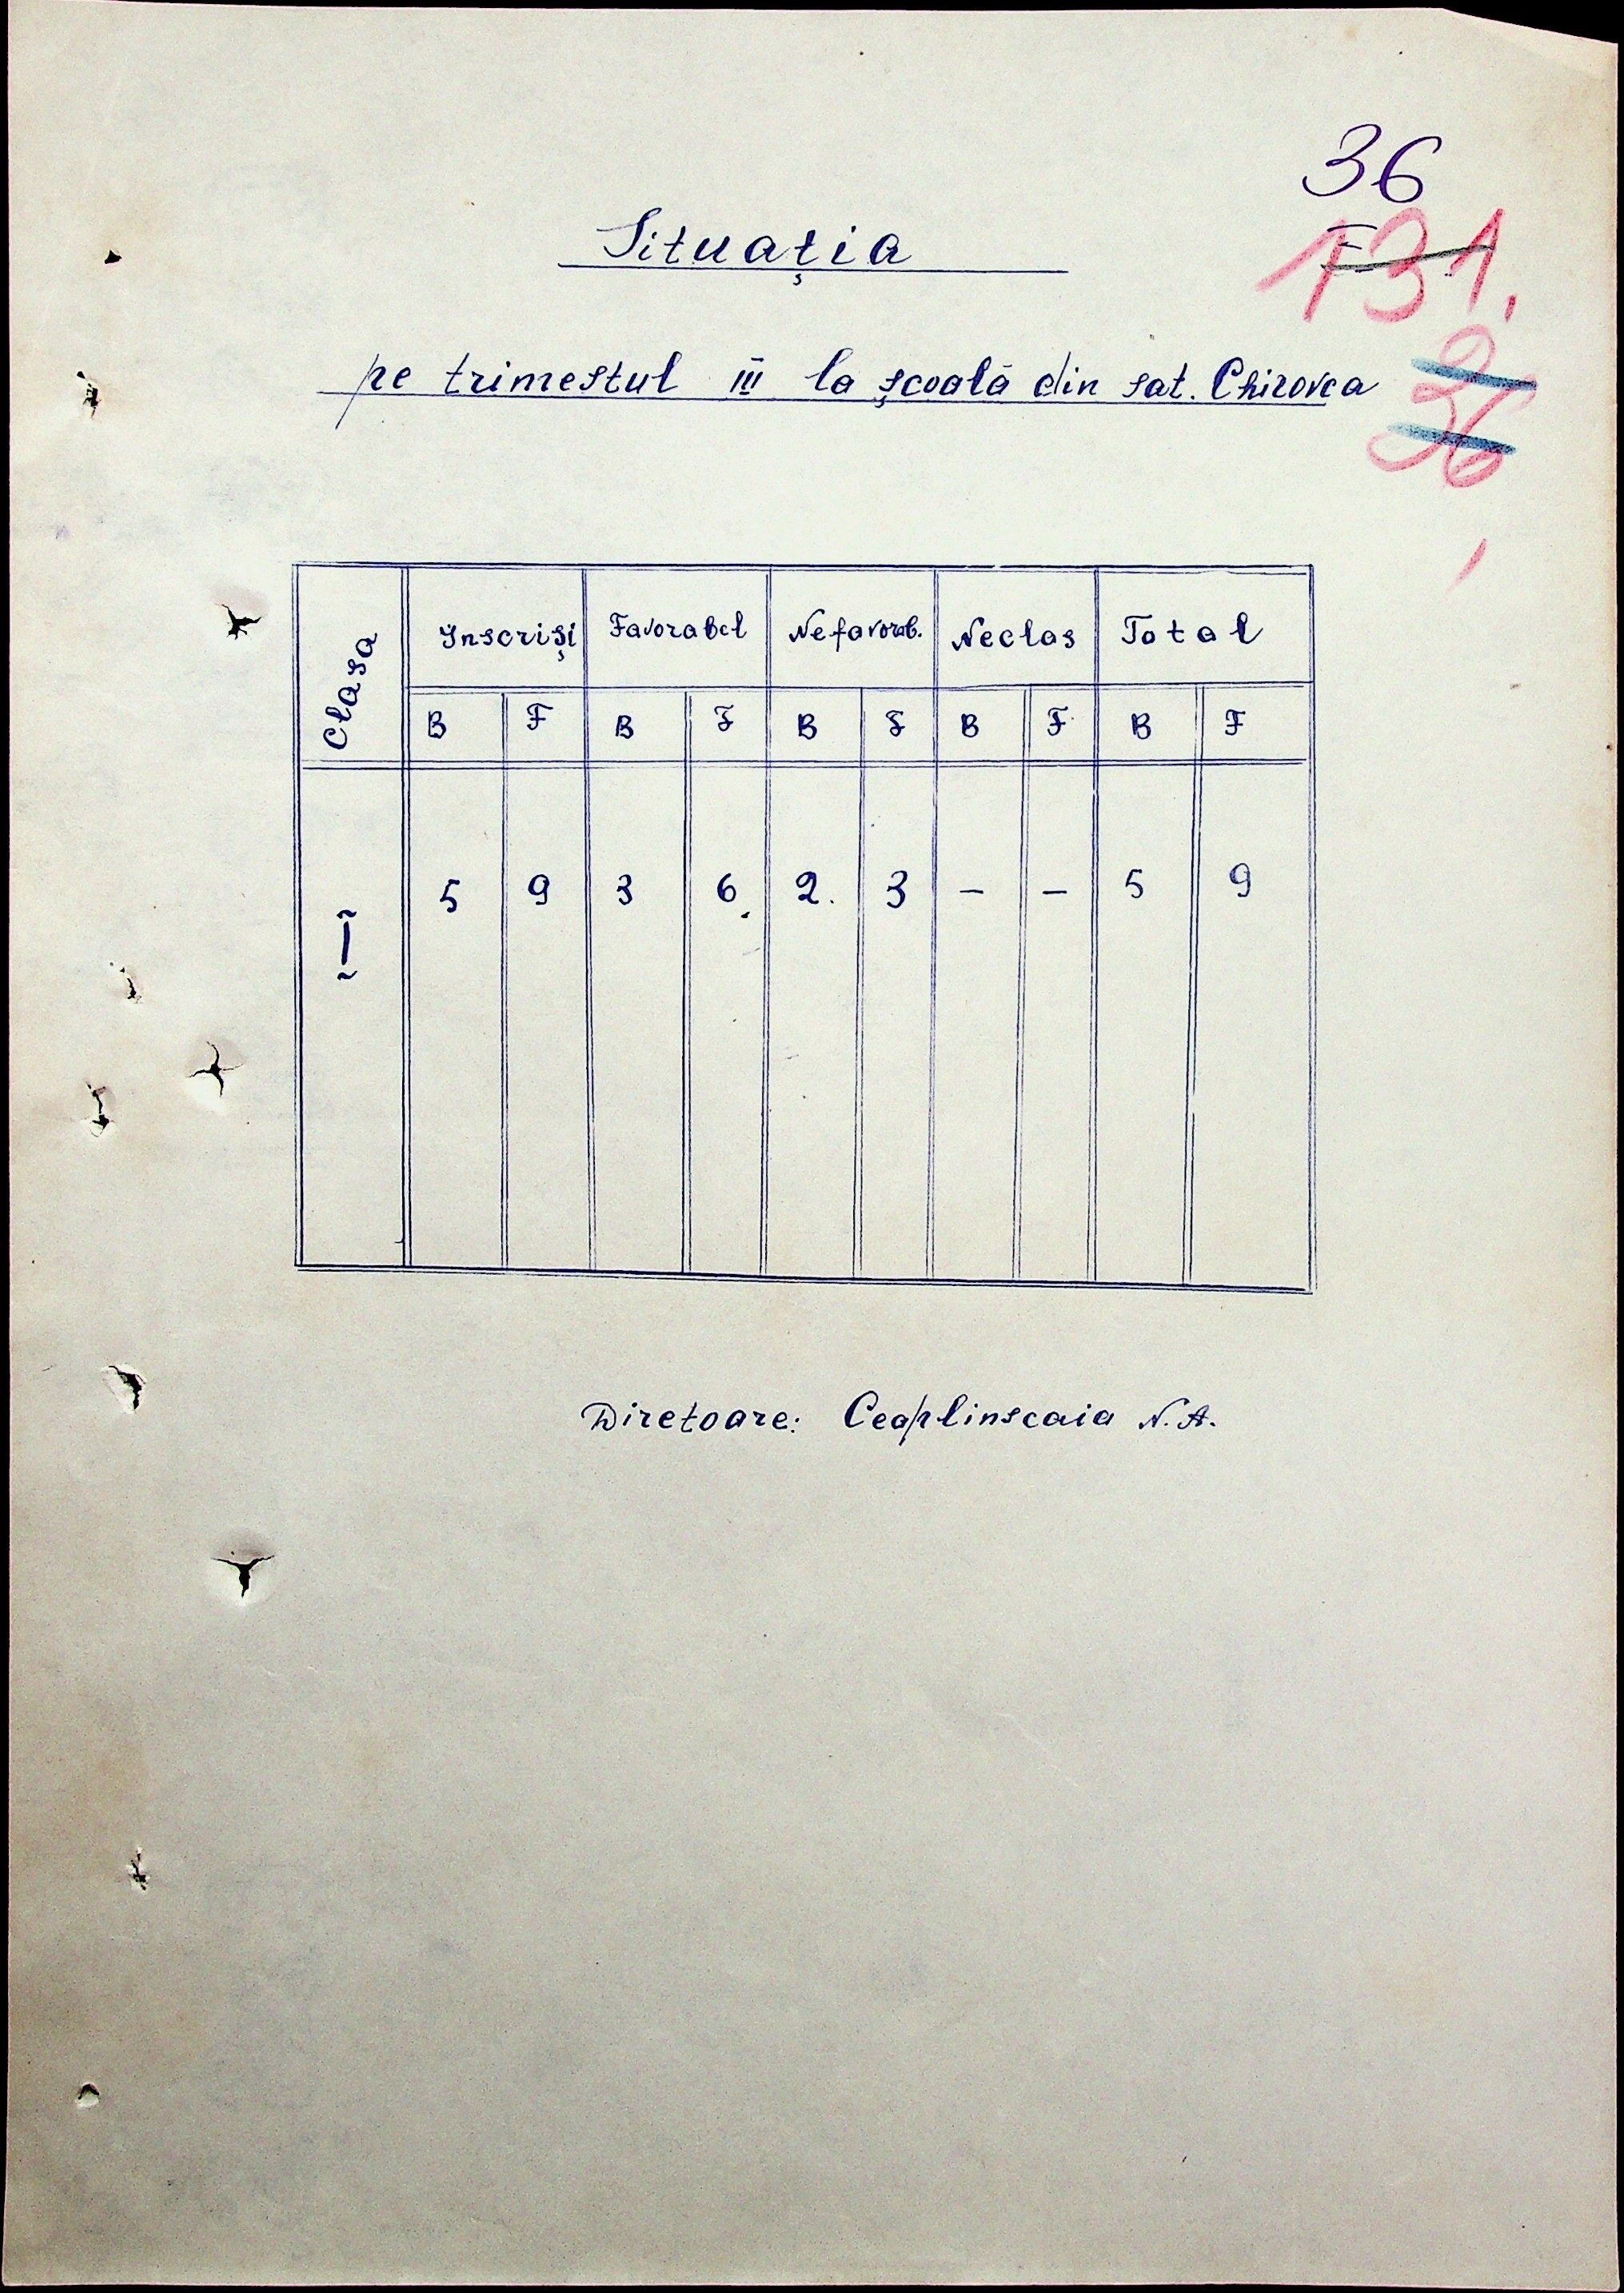 36
131.
36
Situaţia
pe trimestul III la şcoală din sat. Chirovca
Clasa Inscrişi Favorabel Nefavorab. Neclas Total
B F B F B F B F B F
I 5 9 3 6. 2. 3 – – 5 9
Diretoare: Ceaplinscaia N.A.